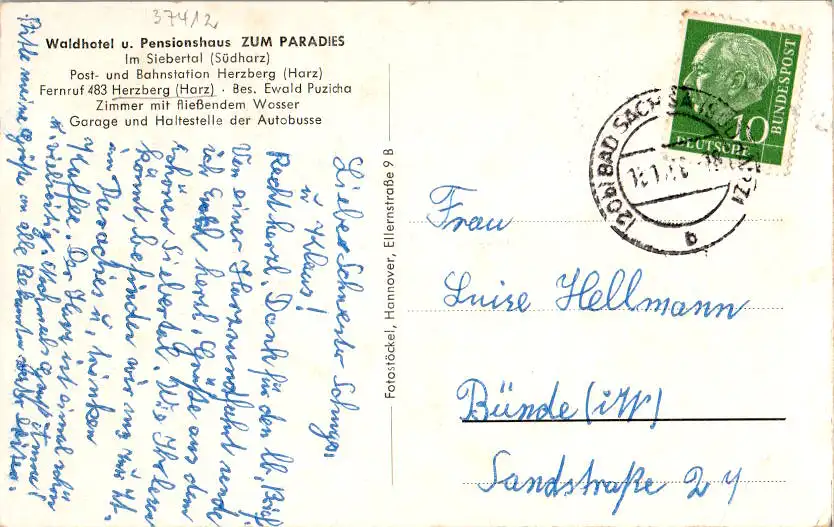 37412
Waldhotel u. Pensionshaus ZUM PARADIES
Im Siebertal (Südharz)
Post- und Bahnstation Herzberg (Harz)
Fernruf 483 Herzberg (Harz) · Bes. Ewald Puzicha
Zimmer mit fließendem Wasser
Garage und Haltestelle der Autobusse
Liebe Schwester
u. Klaus!
Recht herzl. Dank für den lb. Brief
Von einer Harzrundfahrt sende
ich Euch herzl. Grüße aus dem
schönen Siebertal. Wie Ihr
könnt, befinden wir uns zur Zt.
im Paradies u. trinken
Kaffee. Der Harz ist einmal schön
u. vielseitig. Nochmals
meine Grüße an alle Bekannten
Fotostöckel, Hannover, Ellernstraße 9 B
DEUTSCHE BUNDESPOST
10
(20b) BAD SACHSA (SÜDHARZ)
b
Frau
Luise Hellmann
Bünde (i/W)
Sandstraße 24